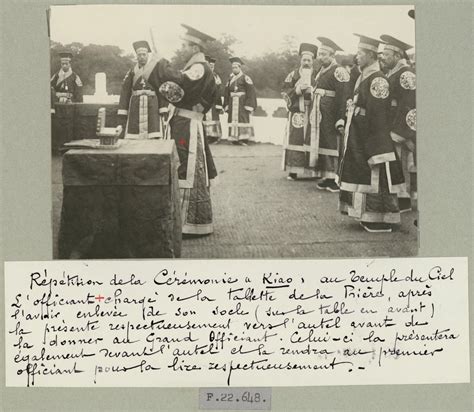 Répétition de la Cérémonie " Kiao ", au Temple du Ciel
L'officiant + chargé de la tablette de la Prière, après
l'avoir enlevée de son socle (sur la table en avant)
la présente respectueusement vers l'autel avant de
la donner au Grand Officiant. Celui-ci la présentera
également devant l'autel et la rendra au premier
officiant pour la lire respectueusement. _
F.22.648.